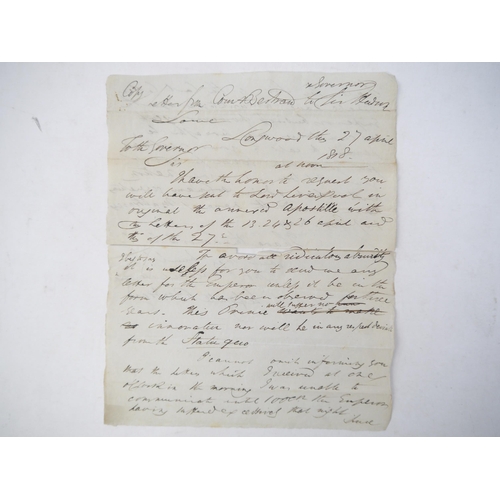 Copy
Governor
Letter from Count Bertrand to Sir Hudson
Lowe
Longwood this 27 april
1818.
To the Governor
at noon
Sir
I have the honor to request you
will have sent to Lord Liverpool in
original the annexed apostille with
my letters of the 13. 24 & 26 april and
of the 27.
To avoid all ridiculous absurdity
it is useless for you to send me any
letter for the Emperor unless it be in the
form which has been observed for three
years. This Prince will suffer no
innovation nor will he in any respect deviate
from the Statu quo
I cannot omit informing you
that the letter which I received at one
oClock in the morning I was unable to
communicate until the Emperor
having suffered extremely that night